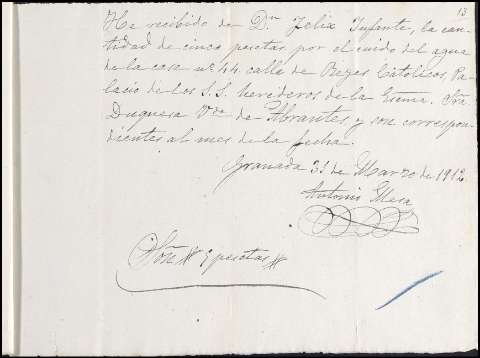 13
He recibido de Dn Felix Infante, la can-
tidad de cinco pesetas por el cuido del agua
de la casa nº 44 calle de Reyes Catolicos, Pa-
lacio de los S.S. herederos de la Excma. Sra.
Duquesa Vda de Abrantes y son correspon-
dientes al mes de la fecha.
Granada 31 de Marzo de 1912
Antonio Mesa
Son # 5 pesetas #